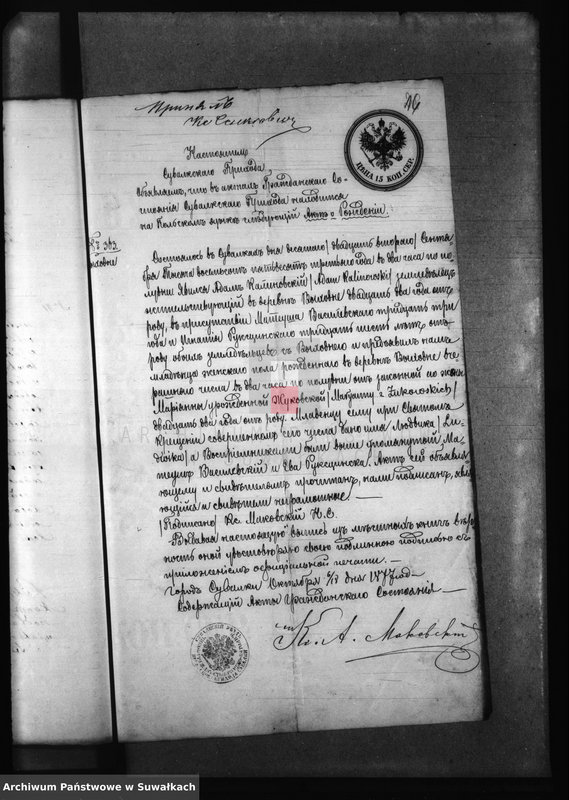 Принялъ
Кс Сенкевичъ
46
ЦѢНА 15 КОП. СЕР.
Настоятель
Сувалкскаго Прихода
объявляетъ, что въ актахъ Гражданскаго Со-
стоянія Сувалкскаго Прихода находится
на Польскомъ языкѣ слѣдующій Актъ о Рожденіи.
№ 363
Воловне
Состоялось въ Сувалкахъ дня десятаго /двадцать втораго/ Сентя-
бря Тысяча восемьсотъ пятьдесятъ третьяго года въ два часа по по-
лудни Явился Адамъ Калиновскій /Adam Kalinowski/ земледѣлецъ
жительствующій въ деревнѣ Воловне двадцать два года отъ
роду, въ присутствіи Матеуша Василевскаго тридцать три
года и Игнатія тридцать шесть лѣтъ отъ
роду обоихъ земледѣльцевъ съ Воловнего и предъявилъ намъ
младенца женскаго пола рожденнаго въ деревнѣ Воловне вче-
рашняго числа въ два часа по полудни отъ законной его жены
Маріанны урожденной Жуковской /Maryanny z Żukowskich/
двадцать два года отъ роду. Младенцу сему при Святомъ
Крещеніи совершенномъ сего числа дано имя Людвика /Lu-
dwika/ а Воспріемниками были выше упомянутый Ма-
теушъ Василевскій и Ева Актъ сей объявля-
ющему и свидѣтелямъ прочитанъ, нами подписанъ, объявля-
ющій и свидѣтели неграмотные —
/Подписано/ Кс. Маковскій Н.С.
Выдавая настоящую выпись изъ мѣстныхъ книгъ вѣр-
ность оной удостовѣряю своею подлинною подписью съ
приложеніемъ оффиціальной печати. —
Городъ Сувалки Октября 6/18 дня 1877 года
Содержащій Акты Гражданскаго Состоянія —
Кс. А. Маковскій
Archiwum Państwowe w Suwałkach